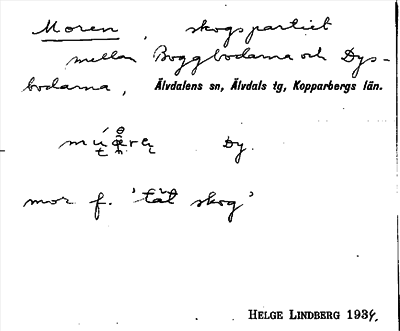 Moren, skogspartiet
mellan Boggbodarna och Dys-
bodarna, Älvdalens sn, Älvdals tg, Kopparbergs län.
Dy.
mor f. 'tät skog'
HELGE LINDBERG 1934.